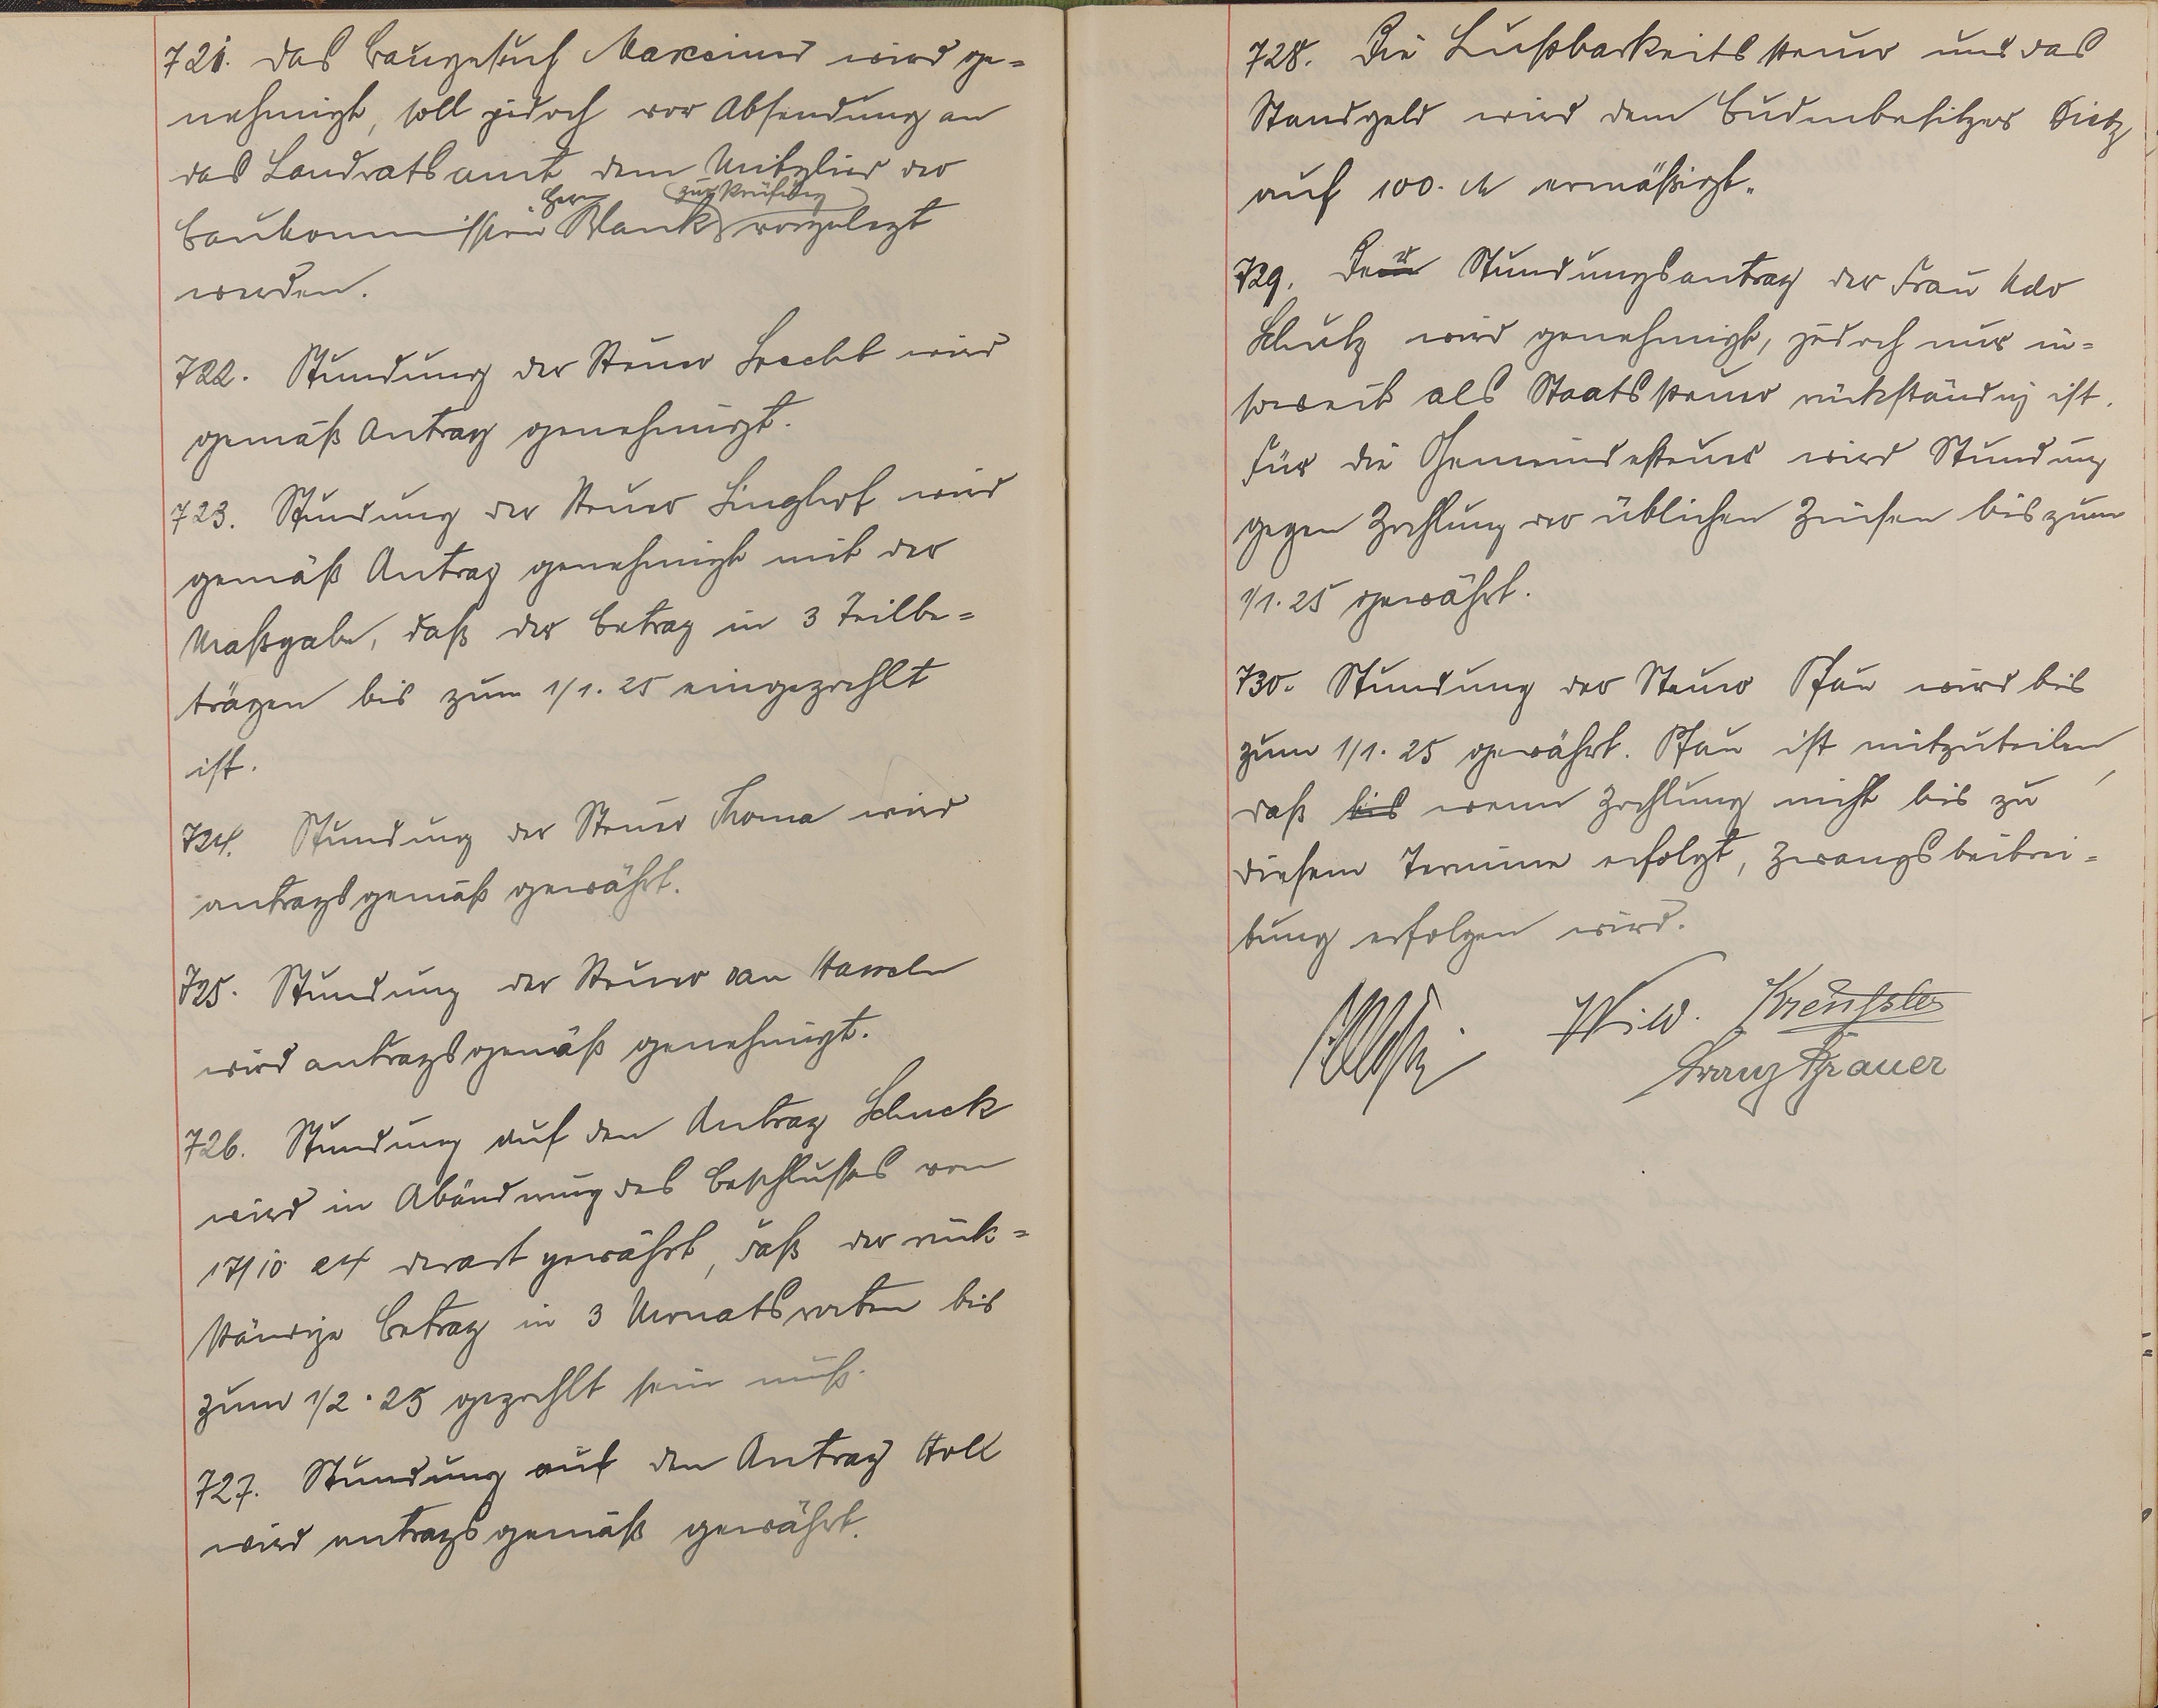 721. Das Baugesuch Marcinus wird ge-
nehmigt, soll jedoch vor Absendung an
das Landratsamt dem Mitglied der
Baukommission Herrn Blank zur Prüfung vorgelegt
werden.
722. Stundung der Steuer Brecht wird
gemäß Antrag genehmigt.
723. Stundung der Steuer Linghof wird
gemäß Antrag genehmigt mit der
Maßgabe, daß der Betrag in 3 Teilbe-
trägen bis zum 1/1. 25 eingezahlt
ist.
724. Stundung der Steuer Thoma wird
antragsgemäß gewährt.
725. Stundung der Steuer van Hameln
wird antragsgemäß genehmigt.
726. Stundung auf den Antrag Schuck
wird in Abänderung des Beschlusses von
17/10 24 derart gewährt, daß der rück-
ständige Betrag in 3 Monatsraten bis
zum 1/2. 25 gezahlt sein muß.
727. Stundung auf den Antrag Holl
wird antragsgemäß gewährt.
728. Die Lustbarkeitssteuer und das
Standgeld wird dem Budenbesitzer Dietz
auf 100. M ermäßigt.
729. Der Stundungsantrag der Frau Udo
Schulz wird genehmigt, jedoch nur in-
soweit als Staatssteuer rückständig ist.
Für die Gemeindesteuer wird Stundung
gegen Zahlung der üblichen Zinsen bis zum
1/1. 25 gewährt.
730. Stundung der Steuer Pfau wird bis
zum 1/1. 25 gewährt. Pfau ist mitzuteilen,
daß bis wenn Zahlung nicht bis zu
diesem Termine erfolgt, Zwangsbeitrei-
bung erfolgen wird.
W. w. Kreußler
Franz Brauer